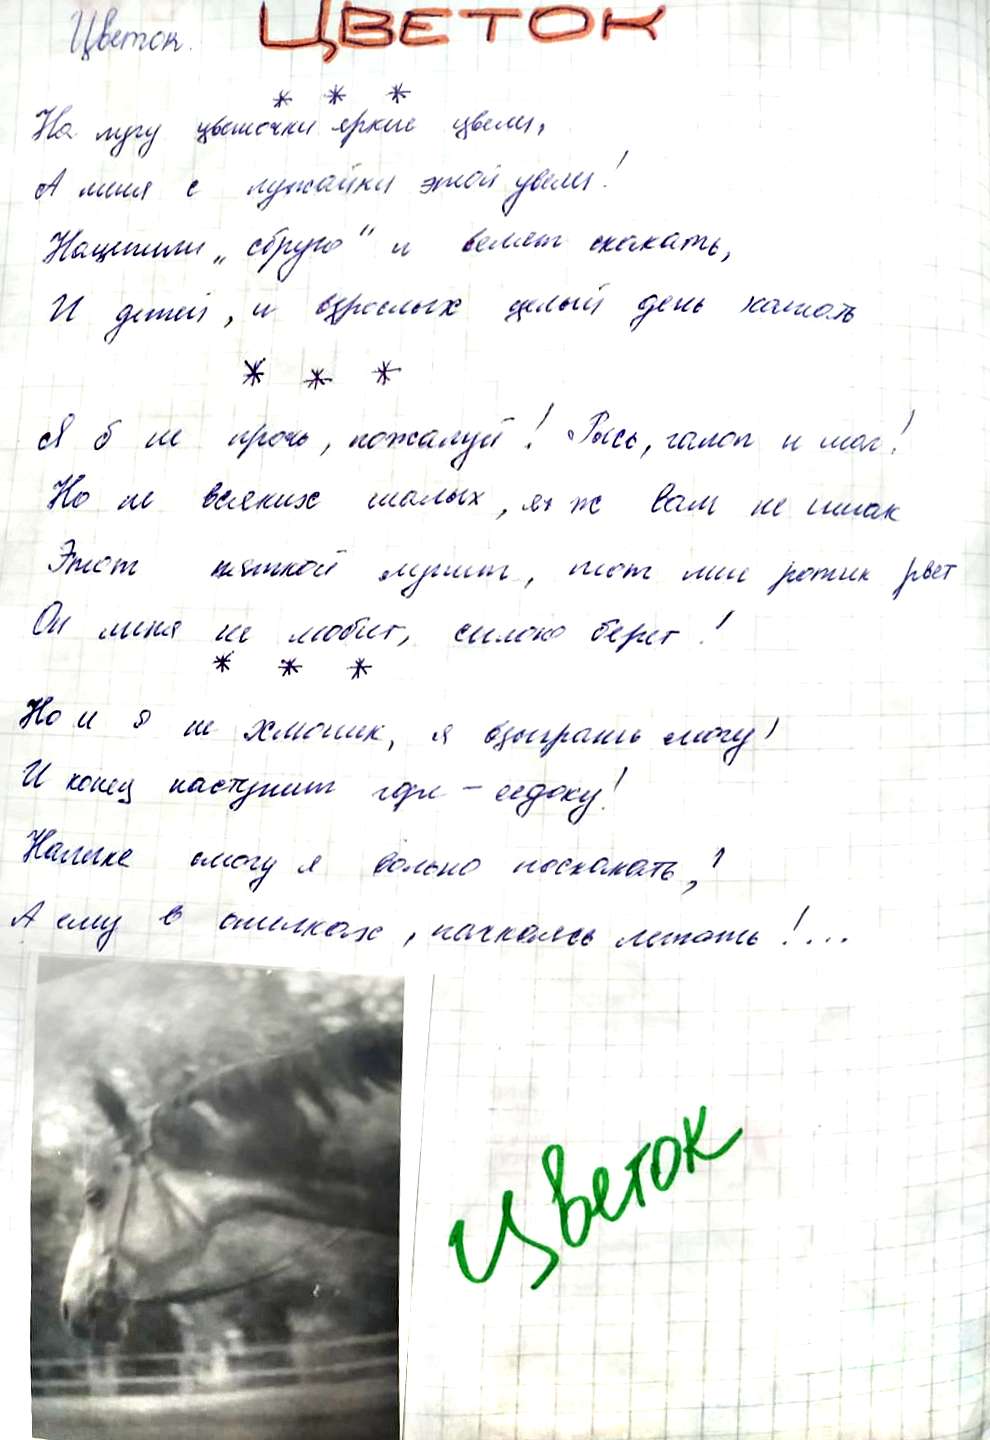 Цветок.
ЦВЕТОК
* * *
На лугу цветочки яркие цвели,
А меня с лужайки этой увели!
Нацепили „сбрую" и велят скакать,
И детей, и взрослых целый день катать
* * *
Я б не прочь, пожалуй! Рысь, галоп и шаг!
Но не всяких шалых, я ж вам не ишак
Этот пяткой лупит, тот мне ротик рвет
Он меня не любит, силою берет!
* * *
Но и я не хлюпик, я взыграть могу!
И конец наступит горе - седоку!
Налегке смогу я вольно поскакать,!
А ему в опилках, пачкаясь летать!...
Цветок